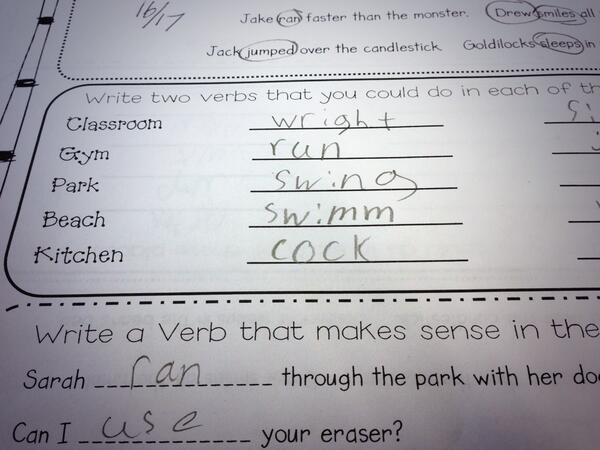 16/17
Jake ran faster than the monster. Drew smiles all
Jack jumped over the candlestick. Goldilocks sleeps in
Write two verbs that you could do in each of th
Classroom wright Si
Gym run
Park swing
Beach swimm
Kitchen cock
Write a Verb that makes sense in the
Sarah ran through the park with her do
Can I use your eraser?